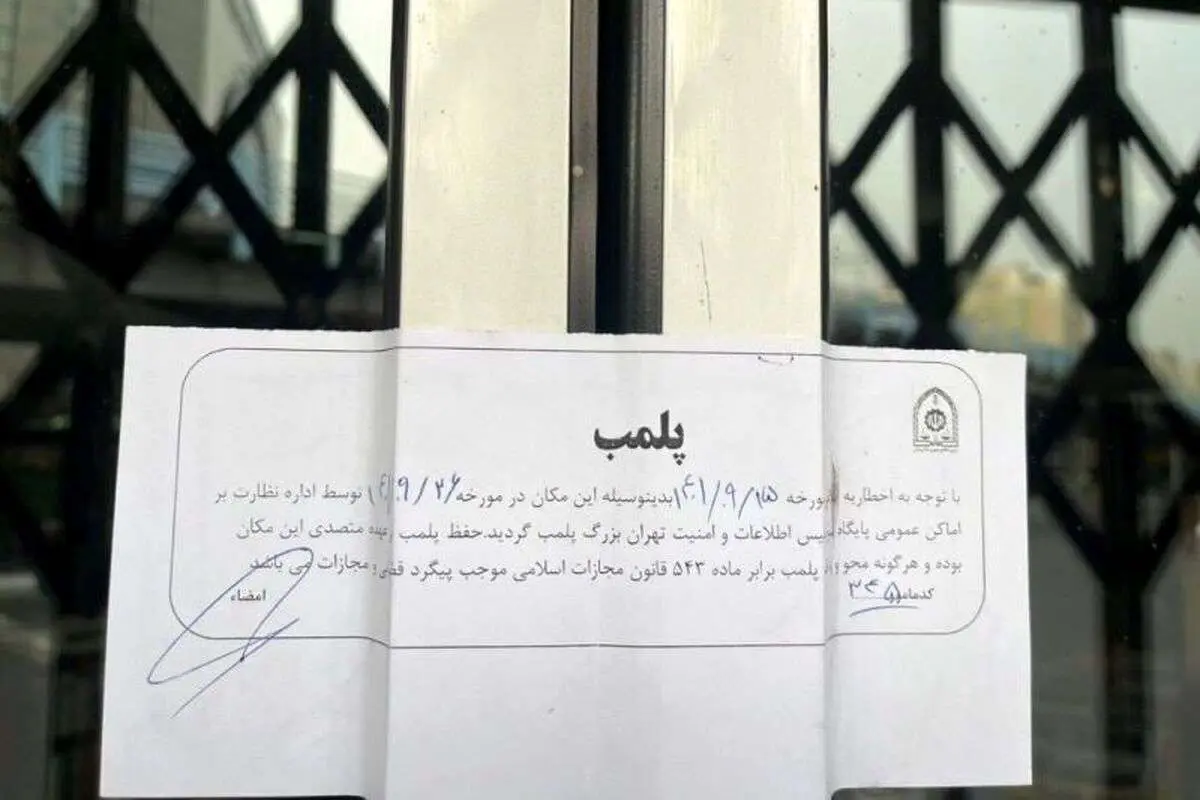 پلمب
با توجه به اخطاریه مورخه ۱۴۰۱/۹/۱۵ بدینوسیله این مکان در مورخه ۱۴۰۱/۹/۲۶ توسط اداره نظارت بر
اماکن عمومی پایگاه پلیس اطلاعات و امنیت تهران بزرگ پلمب گردید.حفظ پلمب بعهده متصدی این مکان
بوده و هرگونه محو و پلمب برابر ماده ۵۴۳ قانون مجازات اسلامی موجب پیگرد قضی و مجازات می باشد
کدمامور امضاء